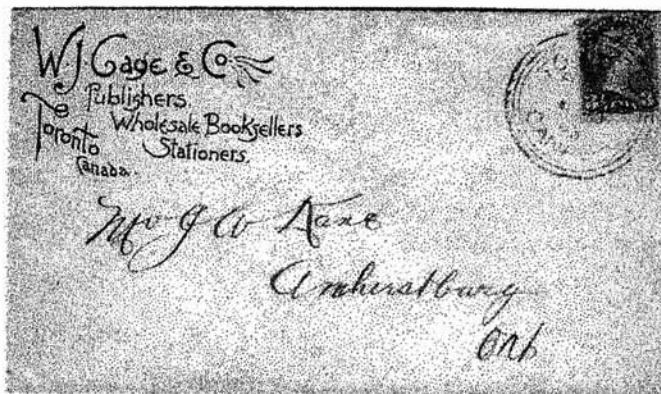 W J Gage & Co
Publishers,
Wholesale Booksellers
Stationers,
Toronto
Canada.
Mr J W Kane
Amherstburg
Ont